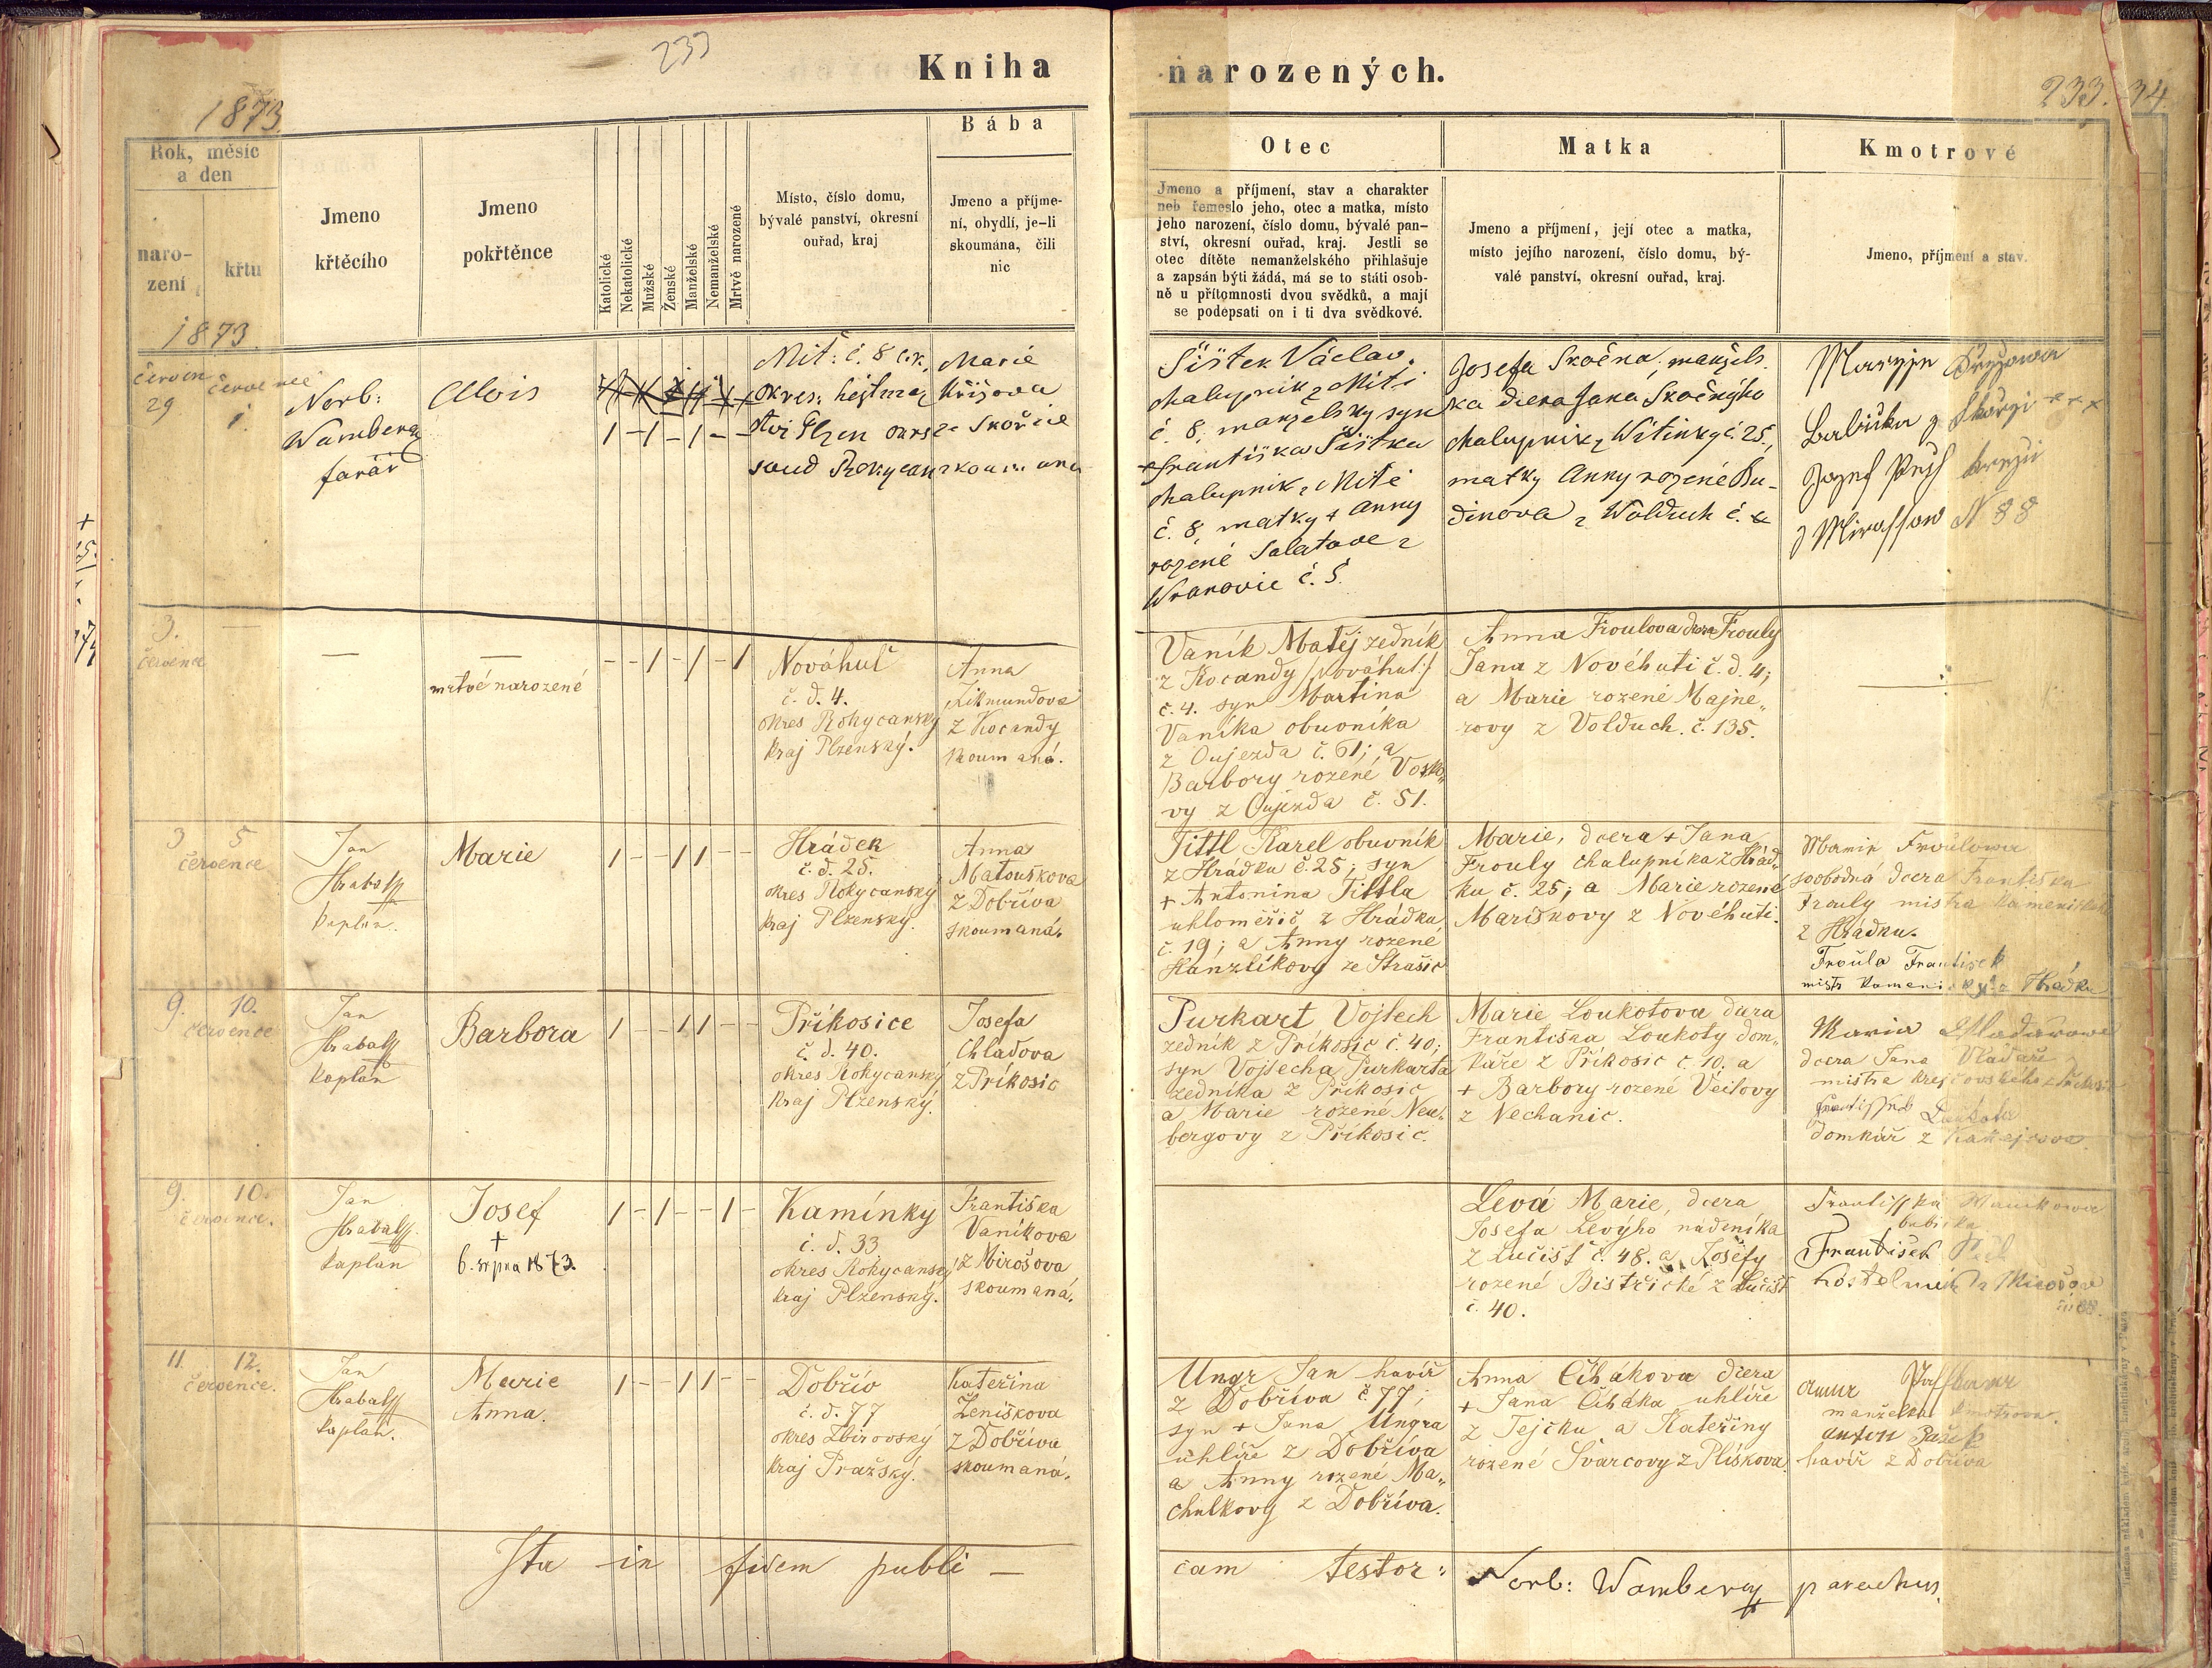 233
Kniha
narozených.
1873
233. 34
Rok, měsíc
a den
naro-
zení
křtu
Jmeno
křtěcího
Jmeno
pokřtěnce
Katolické
Nekatolické
Mužské
Ženské
Manželské
Nemanželské
Mrtvě narozené
Místo, číslo domu,
bývalé panství, okresní
ouřad, kraj
Bába
Jmeno a příjme-
ní, obydlí, je-li
skoumána, čili
nic
Otec
Jmeno a příjmení, stav a charakter
neb řemeslo jeho, otec a matka, místo
jeho narození, číslo domu, bývalé pan-
ství, okresní ouřad, kraj. Jestli se
otec dítěte nemanželského přihlašuje
a zapsán býti žádá, má se to státi osob-
ně u přítomnosti dvou svědků, a mají
se podepsati on i ti dva svědkové.
Matka
Jmeno a příjmení, její otec a matka,
místo jejího narození, číslo domu, bý-
valé panství, okresní ouřad, kraj.
Kmotrové
Jmeno, příjmení a stav.
1873.
červen
29
července
1.
Norb:
Wamberg
farář
Alois
1 - 1 - 1 - -
Mit: č. 8
okres: hejtman
ství Plzen okres
soud Rokycan
Marie
Křížova
ze Skořic
Šistek Václav,
chalupnik z Miti
č. 8, manzelsky syn
Františka Šistka
chalupnik z Mitě
č. 8, matky + Anny
rozené Salatove z
Wranovic č. 5.
Josefa Skočna, manžels
ka dcera Jana Skočnýho
chalupnik z Witinky č. 25,
matky Anny rozené Bu-
dinova z Wolduch č.
x x x
Josef
N 88
3.
července
—
—
—
mrtvé narozené
- - 1 - 1 - 1
Nováhuť
č. d. 4.
okres Rokycanský
kraj Plzenský.
Anna
Zikmundova
z Kocandy
skoumaná.
Vaník Matěj zedník
z Kocandy /Nováhuť/
č. 4. syn Martina
Vaníka obuvníka
z Oujezda č. 61; a
Barbory rozené Vosko„
vy z Oujezda č. 51.
Anna Froulova dcera Frouly
Jana z Novéhuti č. d. 4;
a Marie rozené Majne„
rovy z Volduch. č. 135.
3
5
července
Jan
Hrabal
kaplan.
Marie
1 - - 1 1 - -
Hrádek
č. d. 25.
okres Rokycanský
kraj Plzenský.
Anna
Matouškova
z Dobříva
skoumaná.
Tittl Karel obuvník
z Hrádku č. 25; syn
+ Antonina Tittla
uhloměřič z Hrádku
č. 19; a Anny rozené
Hanzlíkovy ze Strašic
Marie, dcera + Jana
Frouly chalupníka z Hrád„
ku č. 25; a Marie rozené
Mariškovy z Novéhuti.
Froulowa
svobodná dcera Františka
Frouly mistra kamenického
z Hrádku.
Froula František
mistr kamenický z Hrádku
9.
10.
července
Jan
Hrabal
kaplan
Barbora
1 - - 1 1 - -
Příkosice
č. d. 40.
okres Rokycanský
kraj Plzenský.
Josefa
Chladova
z Príkosic
Purkart Vojtech
zedník z Príkosic č. 40;
syn Vojtecha Purkarta
zedníka z Příkosic
a Marie rozené Neu„
bergovy z Příkosic.
Marie Loukotova dcera
Františka Loukoty dom„
káře z Příkosic č. 10. a
+ Barbory rozené Veitovy
z Nechanic.
Maria
dcera Jana
mistra krejčovského z
Loukota
domkář z Kakejcova.
9.
10.
července.
Jan
Hrabal
kaplan
Josef
+
6. srpna 1873.
1 - 1 - - 1 -
Kamínky
č. d. 33
okres Rokycanský
kraj Plzenský.
Františka
Vaníkova
z Mirošova
skoumaná.
Levá Marie, dcera
Josefa Levýho nádeníka
z Lučišť č. 48. a Josefy
rozené Bistřické z Lučišť
č. 40.
babička
František
kostelník z Mirošova
11.
12.
července.
Jan
Hrabal
kaplan.
Marie
Anna.
1 - - 1 1 - -
Dobřív
č. d. 77
okres Zbirovský
kraj Pražský.
Kateřina
Ženíškova
z Dobříva
skoumaná.
Ungr Jan havíř
z Dobříva č 77;
syn + Jana Ungra
uhlíře z Dobříva
a Anny rozené Ma„
chulkovy z Dobříva.
Anna Čihákova dcera
+ Jana Čiháka uhlíře
z Tejčku a Kateřiny
rozené Švarcovy z Plískova.
manželka kmotrova.
anton
havíř z Dobříva
Ita in fidem publi —
cam testor: Norb: Wamberg parochus.